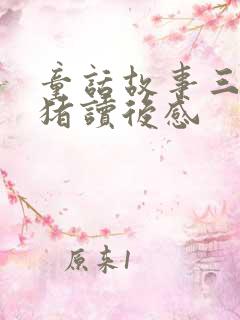 童話故事三
豬讀後感
原来1